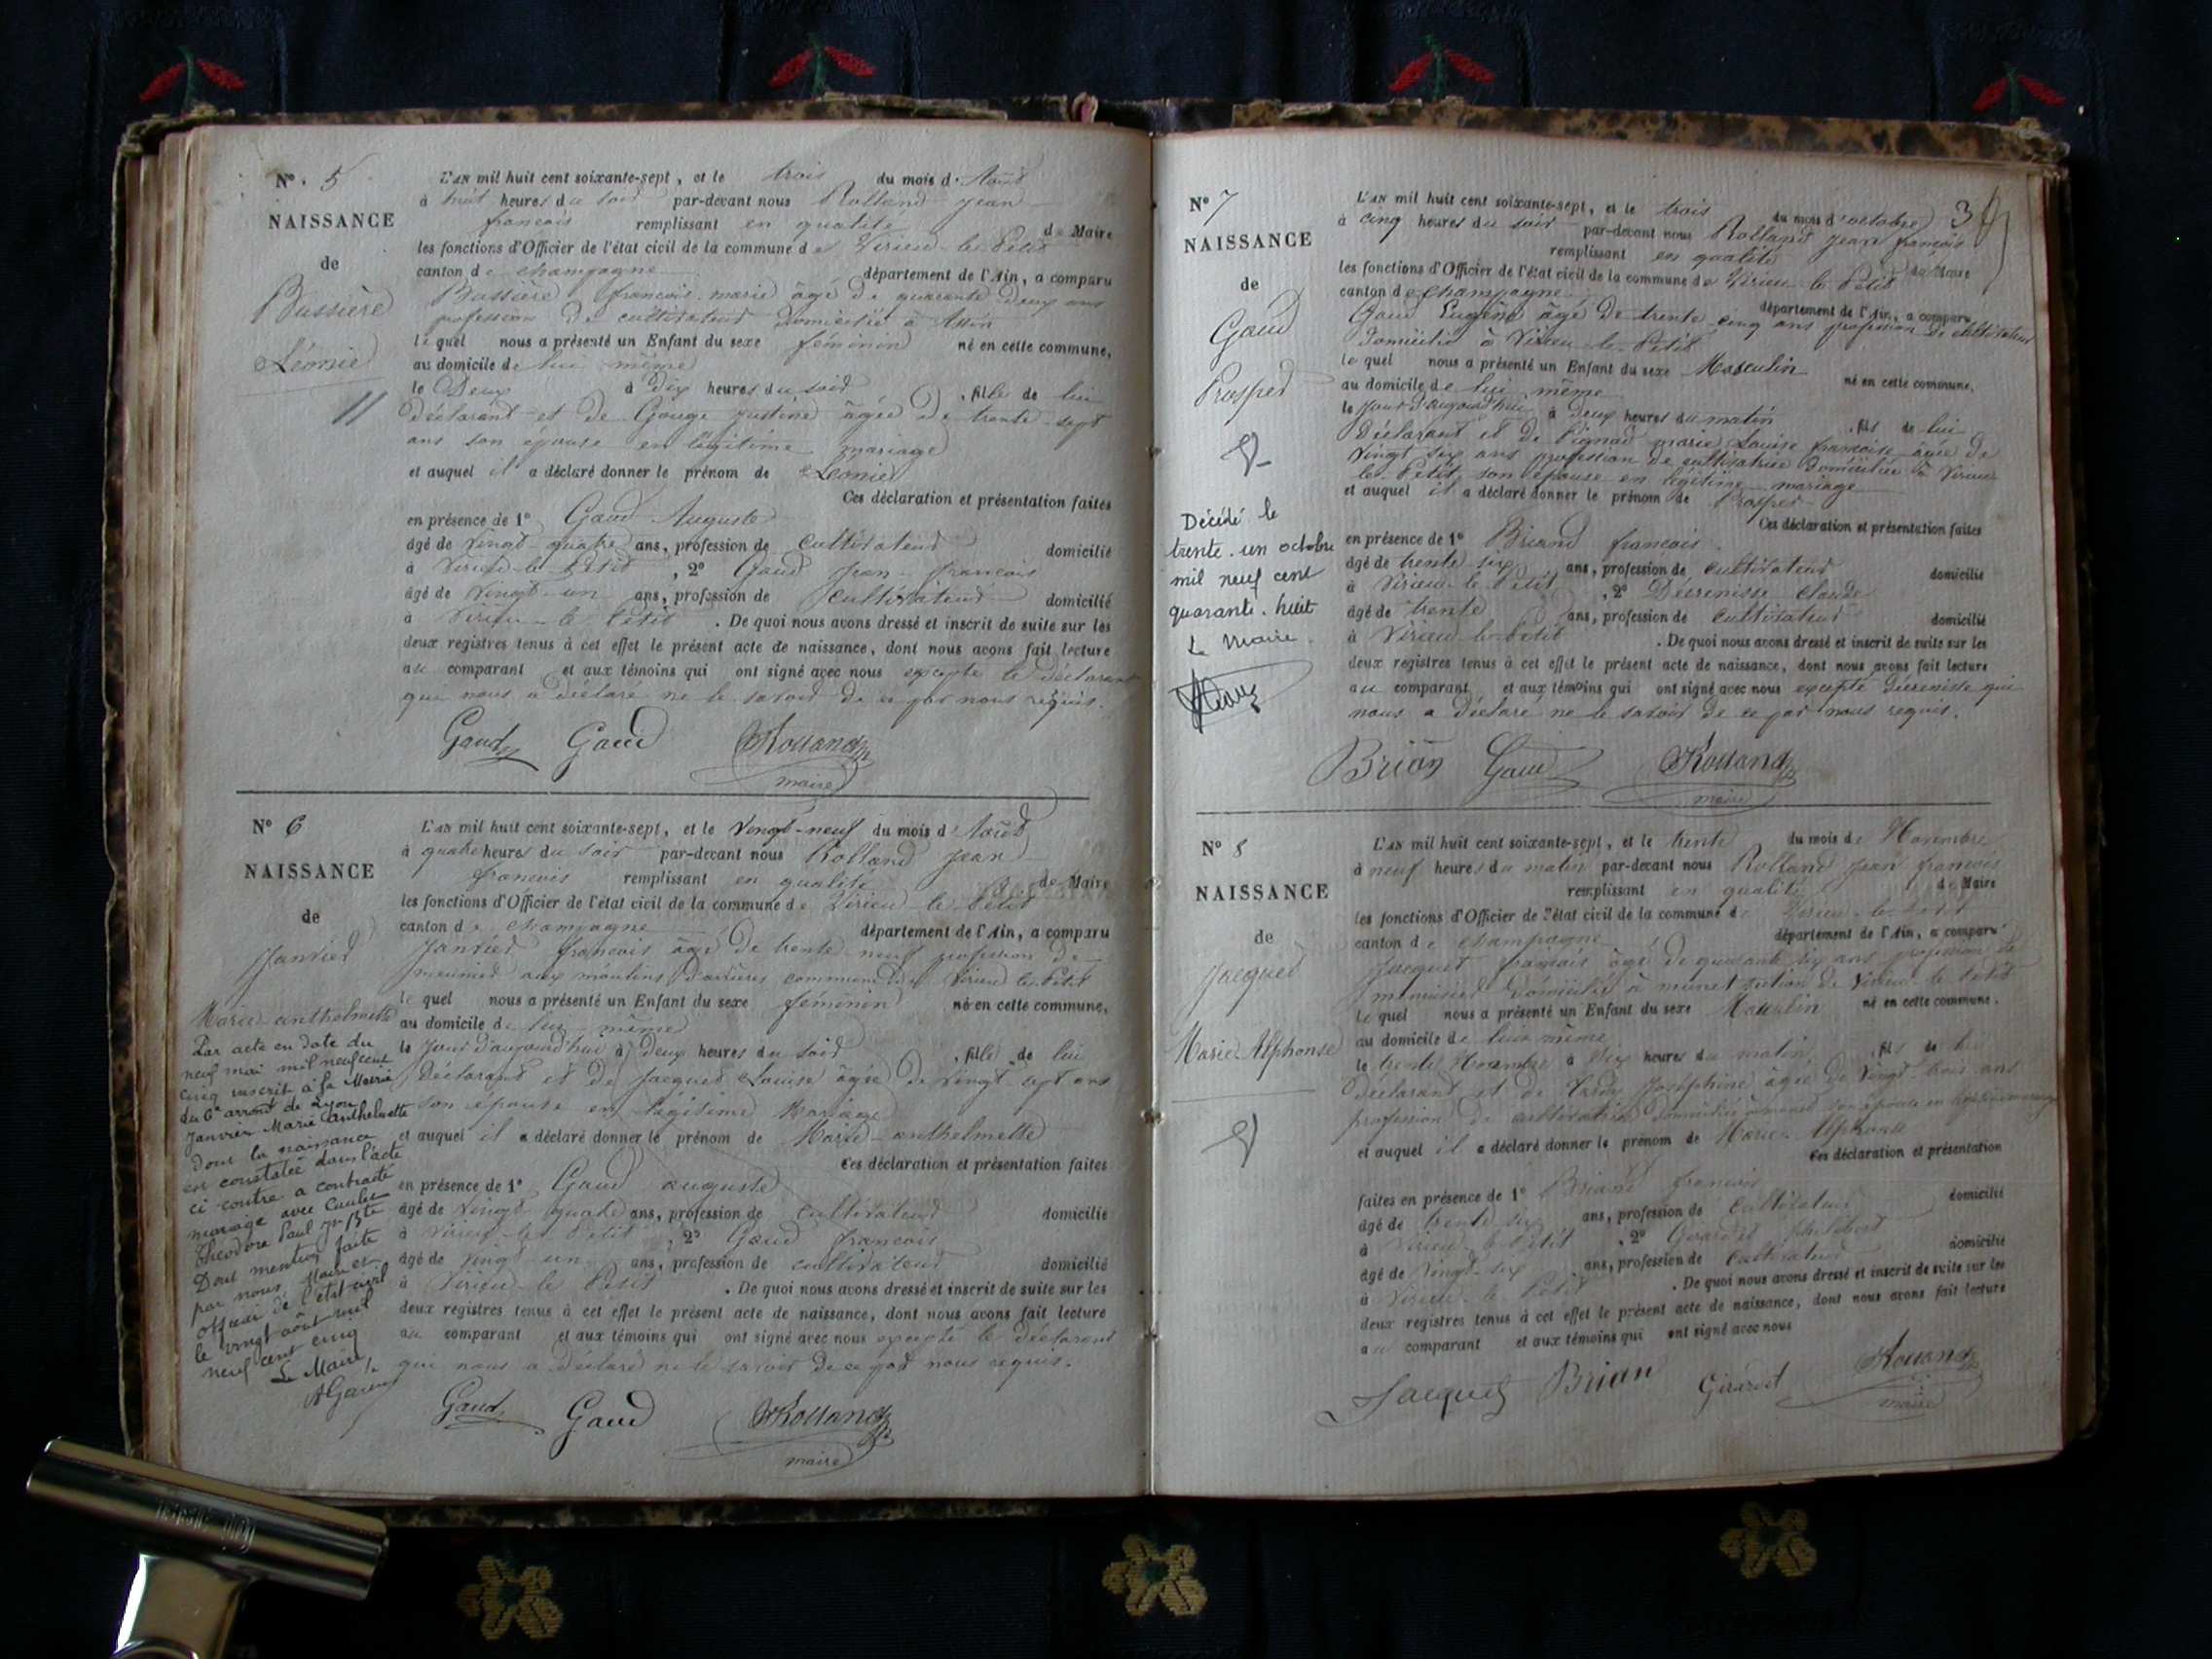 N° 5
NAISSANCE
de
Bussière
Léonie
L'AN mil huit cent soixante-sept, et le trois du mois d'Août
à huit heures du soir par-devant nous Rolland jean
francois remplissant en qualité de Maire
les fonctions d'Officier de l'état civil de la commune de Virieu-le-Petit
canton de champagne département de l'Ain, a comparu
Bussière francois-marie âgé de quarante deux ans
profession de cultivateur domicilié à Assin
lequel nous a présenté un Enfant du sexe féminin né en cette commune,
au domicile de lui même
le Deux à dix heures du soir, fille de lui
déclarant et de Gouge justine âgée de trente-sept
ans son épouse en légitime mariage
et auquel il a déclaré donner le prénom de Léonie
Ces déclaration et présentation faites
en présence de 1° Gaud Auguste
âgé de vingt quatre ans, profession de cultivateur domicilié
à Virieu-le-Petit, 2° Gaud Jean-francois
âgé de vingt-un ans, profession de cultivateur domicilié
à Virieu-le Petit. De quoi nous avons dressé et inscrit de suite sur les
deux registres tenus à cet effet le présent acte de naissance, dont nous avons fait lecture
au comparant et aux témoins qui ont signé avec nous excepté le déclarant
que nous a déclaré ne le savoir de ce par nous requis.
Gaud Gaud Rolland
maire
N° 6
NAISSANCE
de
Janvier
Marie-anthelmette
Par acte en date du
neuf mai mil neuf cent
cinq inscrit à la Mairie
du 6e arront de Lyon
Janvier Marie Anthelmette
dont la naissance
est constatée dans l'acte
ci contre a contracté
mariage avec
Théodore Paul Jn Bte
Dont mention faite
par nous, Maire
officier de l'état civil
le vingt août mil
neuf cent cinq
Le Maire,
L'AN mil huit cent soixante-sept, et le Vingt-neuf du mois d'Août
à quatre heures du soir par-devant nous Rolland jean
francois remplissant en qualité de Maire
les fonctions d'Officier de l'état civil de la commune de Virieu-le-Petit
canton de champagne département de l'Ain, a comparu
Janvier francois âgé de trente neuf profession de
meunier aux moulins commune de Virieu le Petit
lequel nous a présenté un Enfant du sexe féminin né en cette commune,
au domicile de lui-même
le jour d'aujourd'hui à Deux heures du soir, fille de lui
Déclarant et de Jacquet Louise âgée de vingt-sept ans
son épouse en légitime Mariage
et auquel il a déclaré donner le prénom de Marie-anthelmette
Ces déclaration et présentation faites
en présence de 1° Gaud auguste
âgé de vingt quatre ans, profession de cultivateur domicilié
à Virieu-le Petit, 2° Gaud francois
âgé de vingt un ans, profession de cultivateur domicilié
à Virieu-le Petit. De quoi nous avons dressé et inscrit de suite sur les
deux registres tenus à cet effet le présent acte de naissance, dont nous avons fait lecture
au comparant et aux témoins qui ont signé avec nous excepté le déclarant
qui nous a déclaré ne le savoir de ce par nous requis.
Gaud Gaud Rolland
maire
N° 7
NAISSANCE
de
Gaud
Prosper
Décédé le
trente-un octobre
mil neuf cent
quarante-huit
Le Maire.
L'AN mil huit cent soixante-sept, et le trois du mois d'octobre
à cinq heures du soir par-devant nous Rolland jean francois
remplissant en qualité de Maire
les fonctions d'Officier de l'état civil de la commune de Virieu-le-Petit
canton de champagne département de l'Ain, a comparu
Gaud Eugène âgé de trente cinq ans profession de cultivateur
domicilié à Virieu-le-Petit
lequel nous a présenté un Enfant du sexe Masculin né en cette commune,
au domicile de lui même
le jour d'aujourd'hui à deux heures du matin, fils de lui
déclarant et de marie Louise francoise âgée de
vingt six ans profession de cultivatrice domiciliée à Virieu
le-Petit, son épouse en légitime mariage
et auquel il a déclaré donner le prénom de Prosper
Ces déclaration et présentation faites
en présence de 1° Briand francois
âgé de trente six ans, profession de cultivateur domicilié
à Virieu-le Petit, 2° Décrenisse Claude
âgé de trente ans, profession de cultivateur domicilié
à Virieu-le-Petit. De quoi nous avons dressé et inscrit de suite sur les
deux registres tenus à cet effet le présent acte de naissance, dont nous avons fait lecture
au comparant et aux témoins qui ont signé avec nous excepté Décrenisse qui
nous a Déclaré ne le savoir de ce par nous requis.
Brian Gaud Rolland
maire
N° 8
NAISSANCE
de
Jacquet
Marie-Alphonse
L'AN mil huit cent soixante-sept, et le trente du mois de Novembre
à neuf heures du matin par-devant nous Rolland jean francois
remplissant en qualité de Maire
les fonctions d'Officier de l'état civil de la commune de Virieu-le-Petit
canton de champagne département de l'Ain, a comparu
Jacquet francois âgé de quarante six ans profession de
menuisier domicilié à munet section de Virieu-le-Petit
lequel nous a présenté un Enfant du sexe Masculin né en cette commune,
au domicile de lui même
le trente Novembre à six heures du matin, fils de lui
déclarant et de Joséphine âgée de vingt-trois ans
profession de cultivatrice domiciliée à munet son épouse en légitime mariage
et auquel il a déclaré donner le prénom de Marie-Alphonse
Ces déclaration et présentation
faites en présence de 1° Briand francois
âgé de trente six ans, profession de Cultivateur domicilié
à Virieu-le Petit, 2° Girardet
âgé de vingt-six ans, profession de Cultivateur domicilié
à Virieu-le Petit. De quoi nous avons dressé et inscrit de suite sur les
deux registres tenus à cet effet le présent acte de naissance, dont nous avons fait lecture
au comparant et aux témoins qui ont signé avec nous
Jacquet Brian Girardet Rolland
maire